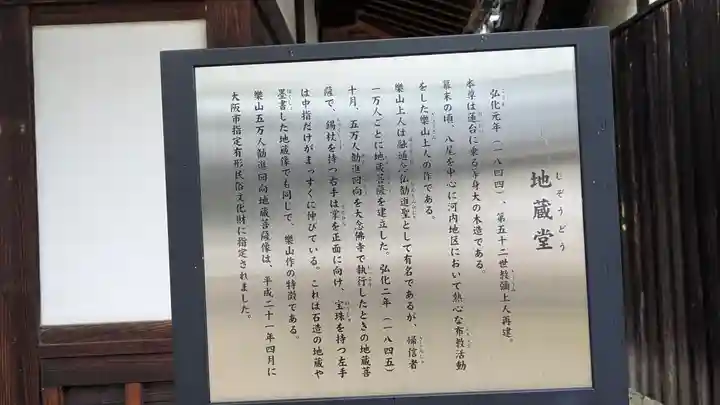 地蔵堂
じぞうどう
弘化元年(一八四四)、第五十二世教彌上人再建。
本尊は蓮台に乗る等身大の木造である。
幕末の頃、八尾を中心に河内地区において熱心な布教活動
をした樂山上人の作である。
樂山上人は融通念仏勧進聖として有名であるが、帰信者
一万人ごとに地蔵菩薩を建立した。弘化二年(一八四五)
十月、五万人勧進回向を大念佛寺で執行したときの地蔵菩
薩で、錫杖を持つ右手は掌を正面に向け、宝珠を持つ左手
は中指だけがまっすぐに伸びている。これは石造の地蔵や
墨書した地蔵像でも同じで、樂山作の特徴である。
樂山五万人勧進回向地蔵菩薩像は、平成二十一年四月に
大阪市指定有形民俗文化財に指定されました。